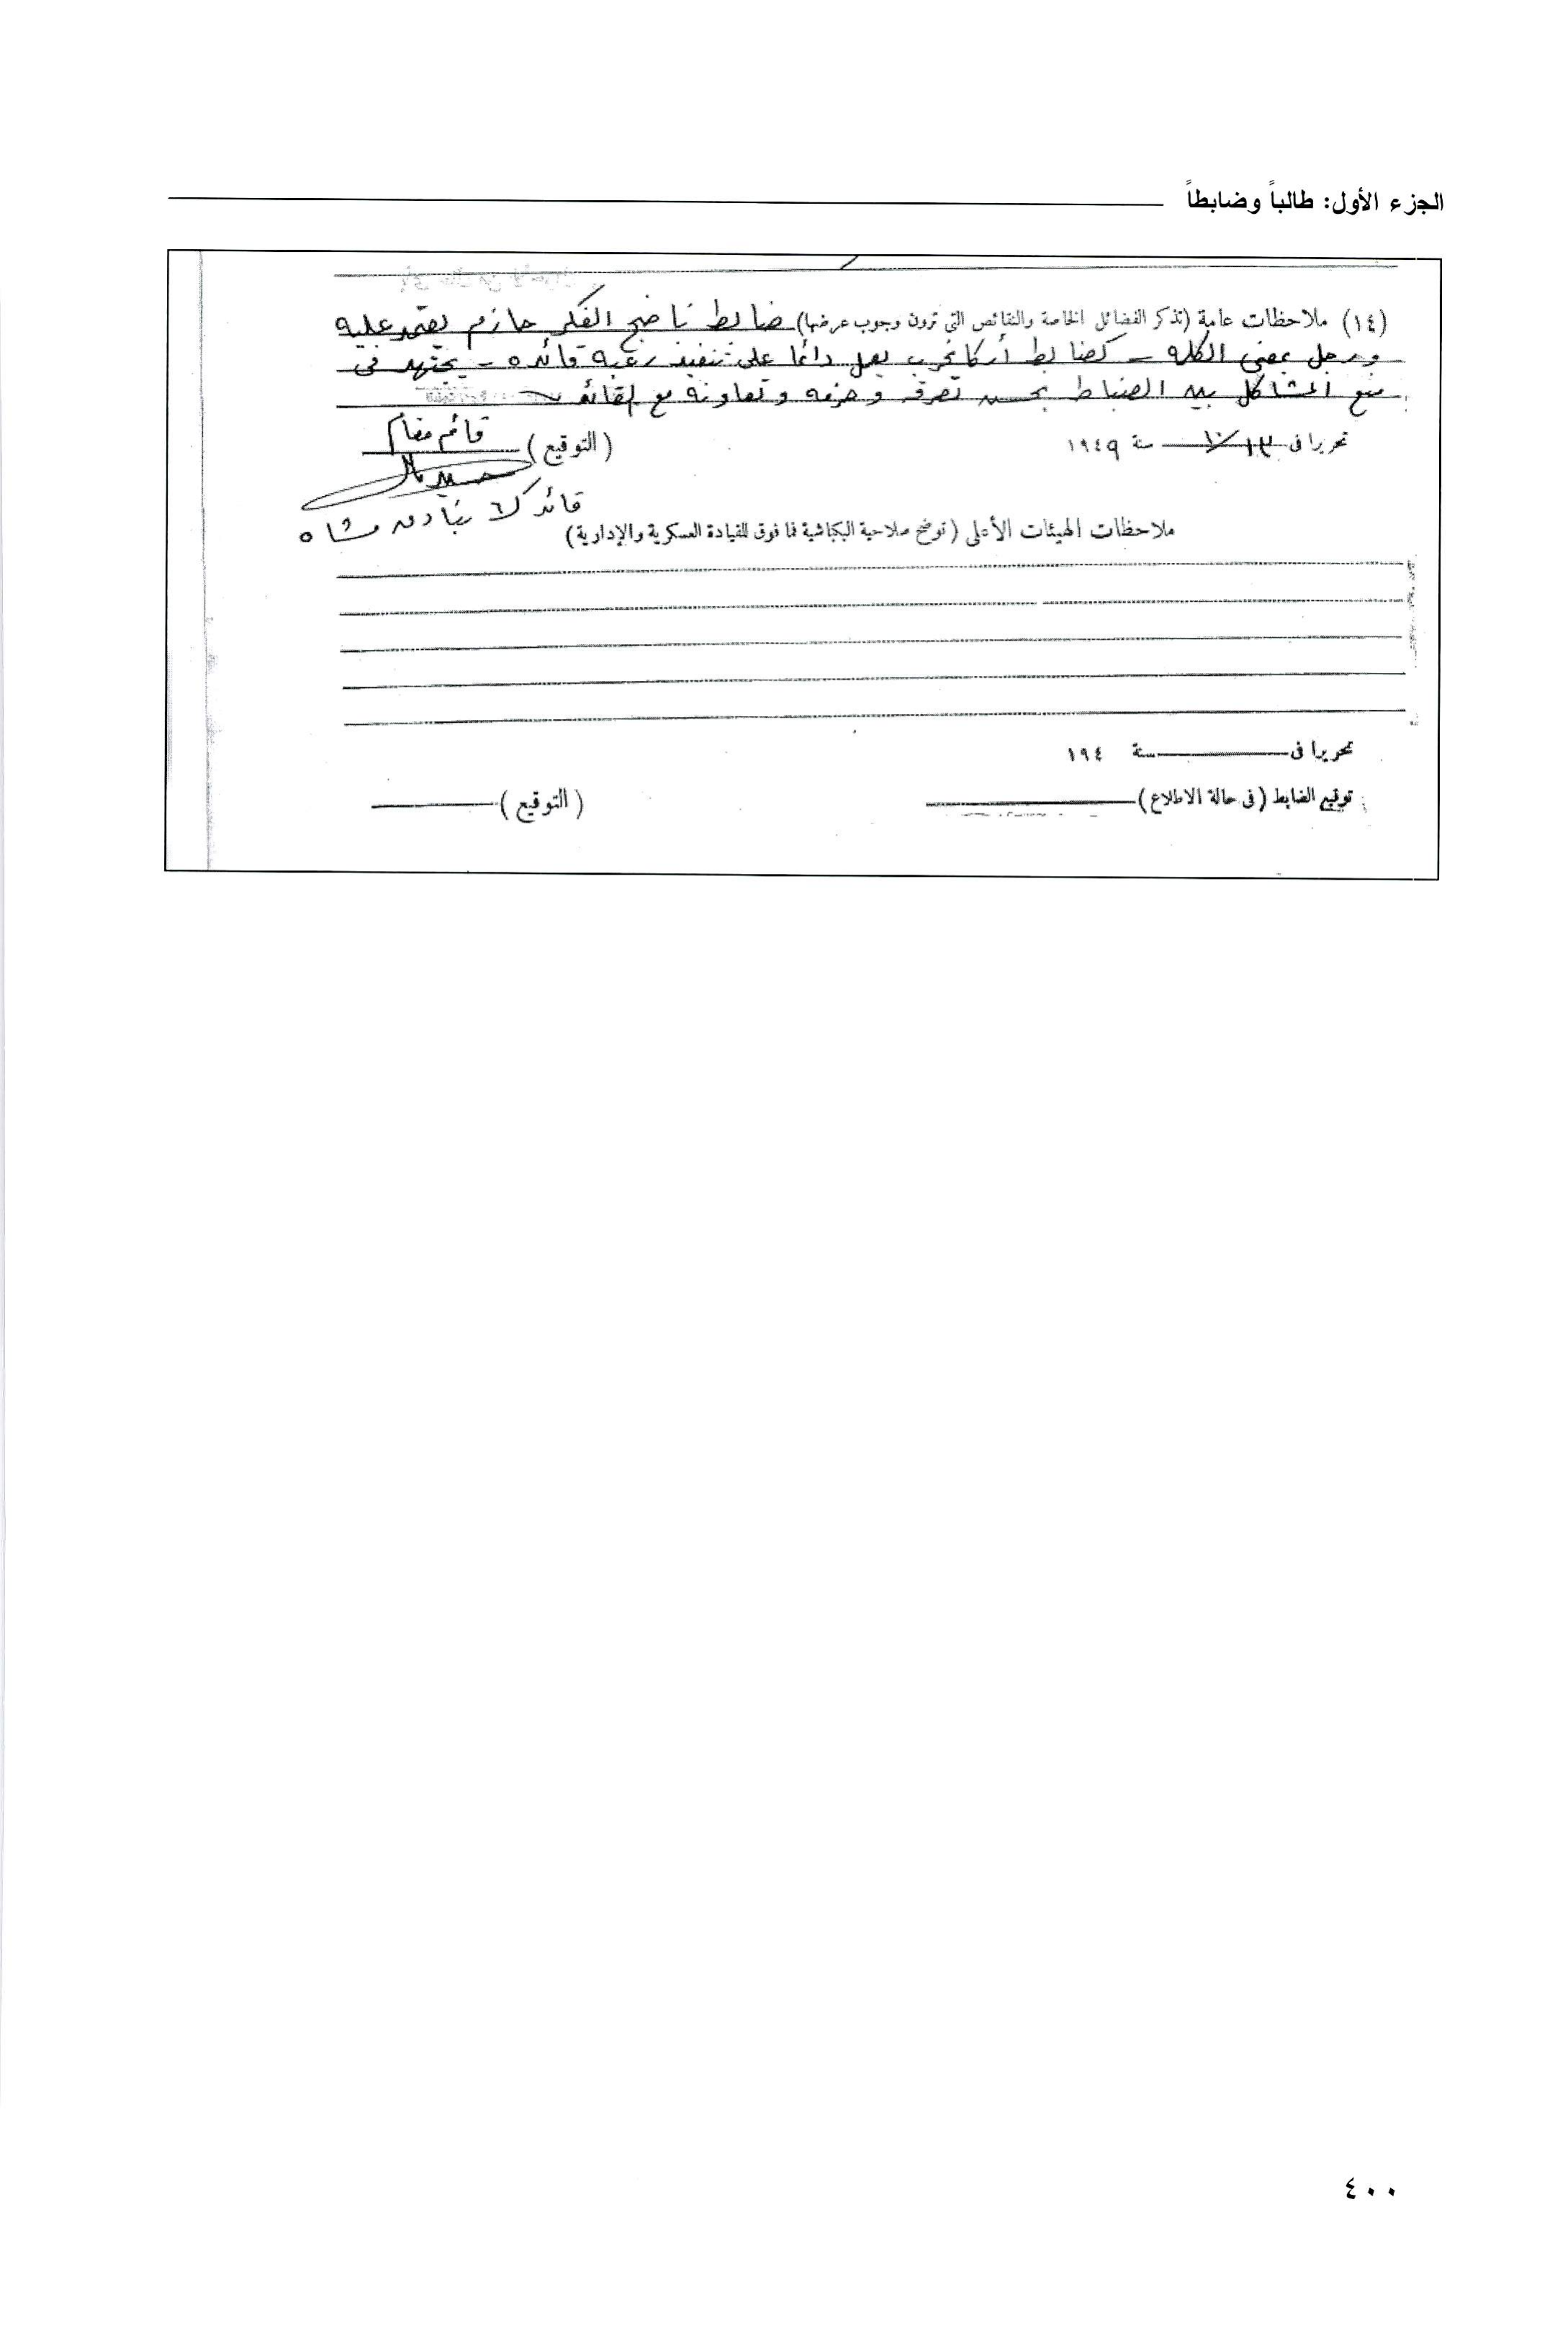 الجزء الأول: طالباً وضابطاً
(١٤) ملاحظات عامة (تذكر الفضائل الخاصة والنقائص التى ترون وجوب عرضها) ضابط ناضج الفكر حازم يعتمد عليه
ورجل بمعنى الكلمه - كضابط أركانحرب يعمل دائما على تنفيذ رغبة قائده - يجتهد فى
منع المشاكل بين الضباط بحسن تصرفه وحزمه وتعاونه مع القائد
تحريرا فى ١٣/١٠ سنة ١٩٤٩
(التوقيع) قائم مقام
قائد ك٦ بنادق مشاه
ملاحظات الهيئات الأعلى (توضح صلاحية البكباشية فما فوق للقيادة العسكرية والإدارية)
تحريرا فى سنة ١٩٤
توقيع الضابط (فى حالة الاطلاع) (التوقيع)
٤٠٠